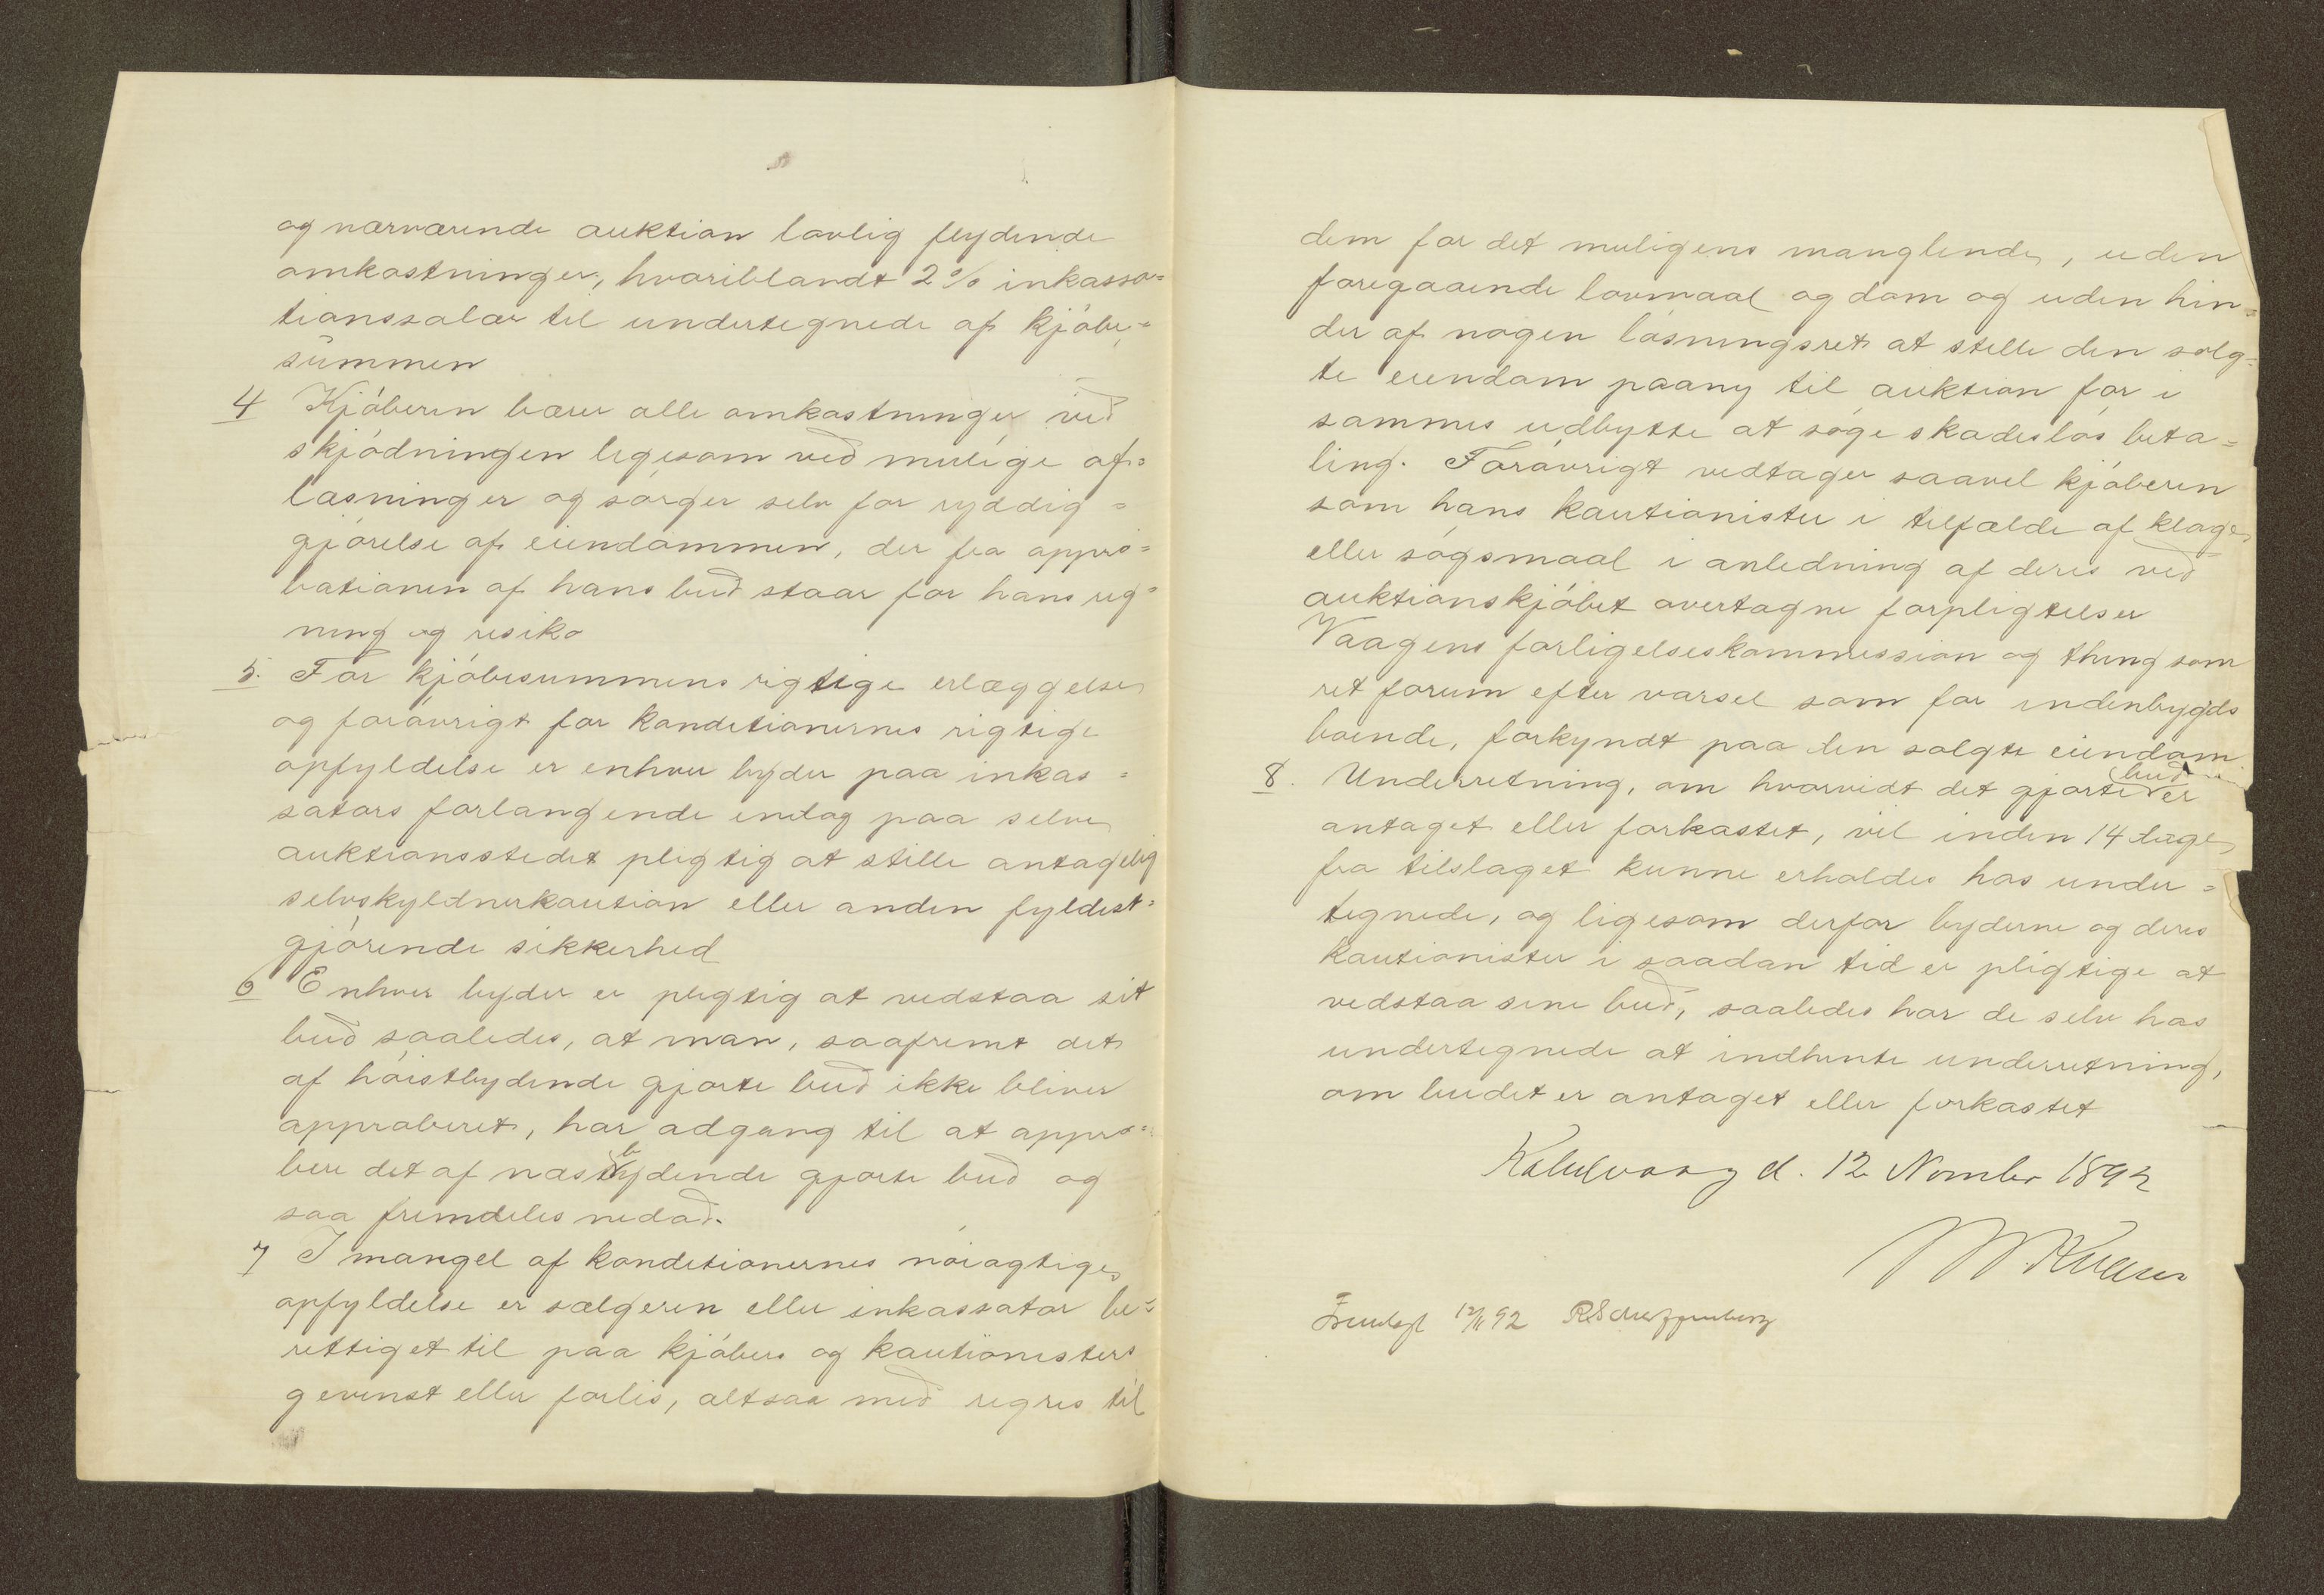 og nærværende auktion lovlig flydende
omkostninger, hvoriblandt 2% inkassa=
tionssalær til undertegnede af kjøbe=
summen
4 Kjøberen bærer alle omkostninger ved
skjødningen ligesom ved mulige af=
løsninger og sørger selv for ryddig=
gjørelse af eiendommen, der fra appro=
bationen af hans bud staar for hans reg=
ning og risiko
5. For kjøbesummens rigtige erlæggelse
og forøvrigt for konditionernes rigtige
opfyldelse er enhver byder paa inkas=
sators forlangende endog paa selve
auktionsstedet pligtig at stille antagelig
selvskyldnerkaution eller anden fyldest=
gjørende sikkerhed
6 Enhver byder er pligtig at vedstaa sit
bud saaledes, at man, saafremt det
af høistbydende gjorte bud ikke bliver
approberet, har adgang til at appro=
bere det af næstbydende gjorte bud og
saa fremdeles nedad.
7 I mangel af konditionernes nøiagtige
opfyldelse er sælgeren eller inkassator be=
rettiget til paa kjøbers og kautionisters
gevinst eller forlis, altsaa med regres til
dem for det muligens manglende, uden
foregaaende lovmaal og dom og uden hin=
der af nogen løsningsret at stille den solg=
te eiendom paany til auktion for i
sammes udbytte at søge skadesløs beta=
ling. Forøvrigt vedtager saavel kjøberen
som hans kautionister i tilfælde af klage
eller søgsmaal i anledning af deres ved
auktionskjøbet overtagne forpligtelser
Vaagens forligelseskommission og thing som
ret forum efter varsel som for indenbygds
boende, forkyndt paa den solgte eiendom
8. Underretning, om hvorvidt det gjorte bud er
antaget eller forkastet, vil inden 14 dage
fra tilslaget kunne erholdes hos under=
tegnede, og ligesom derfor byderne og deres
kautionister i saadan tid er pligtige at
vedstaa sine bud, saaledes har de selv hos
undertegnede at indhente underretning,
om budet er antaget eller forkastet
Kabelvaag d. 12 November 1892
Fremlagt 12/11 92